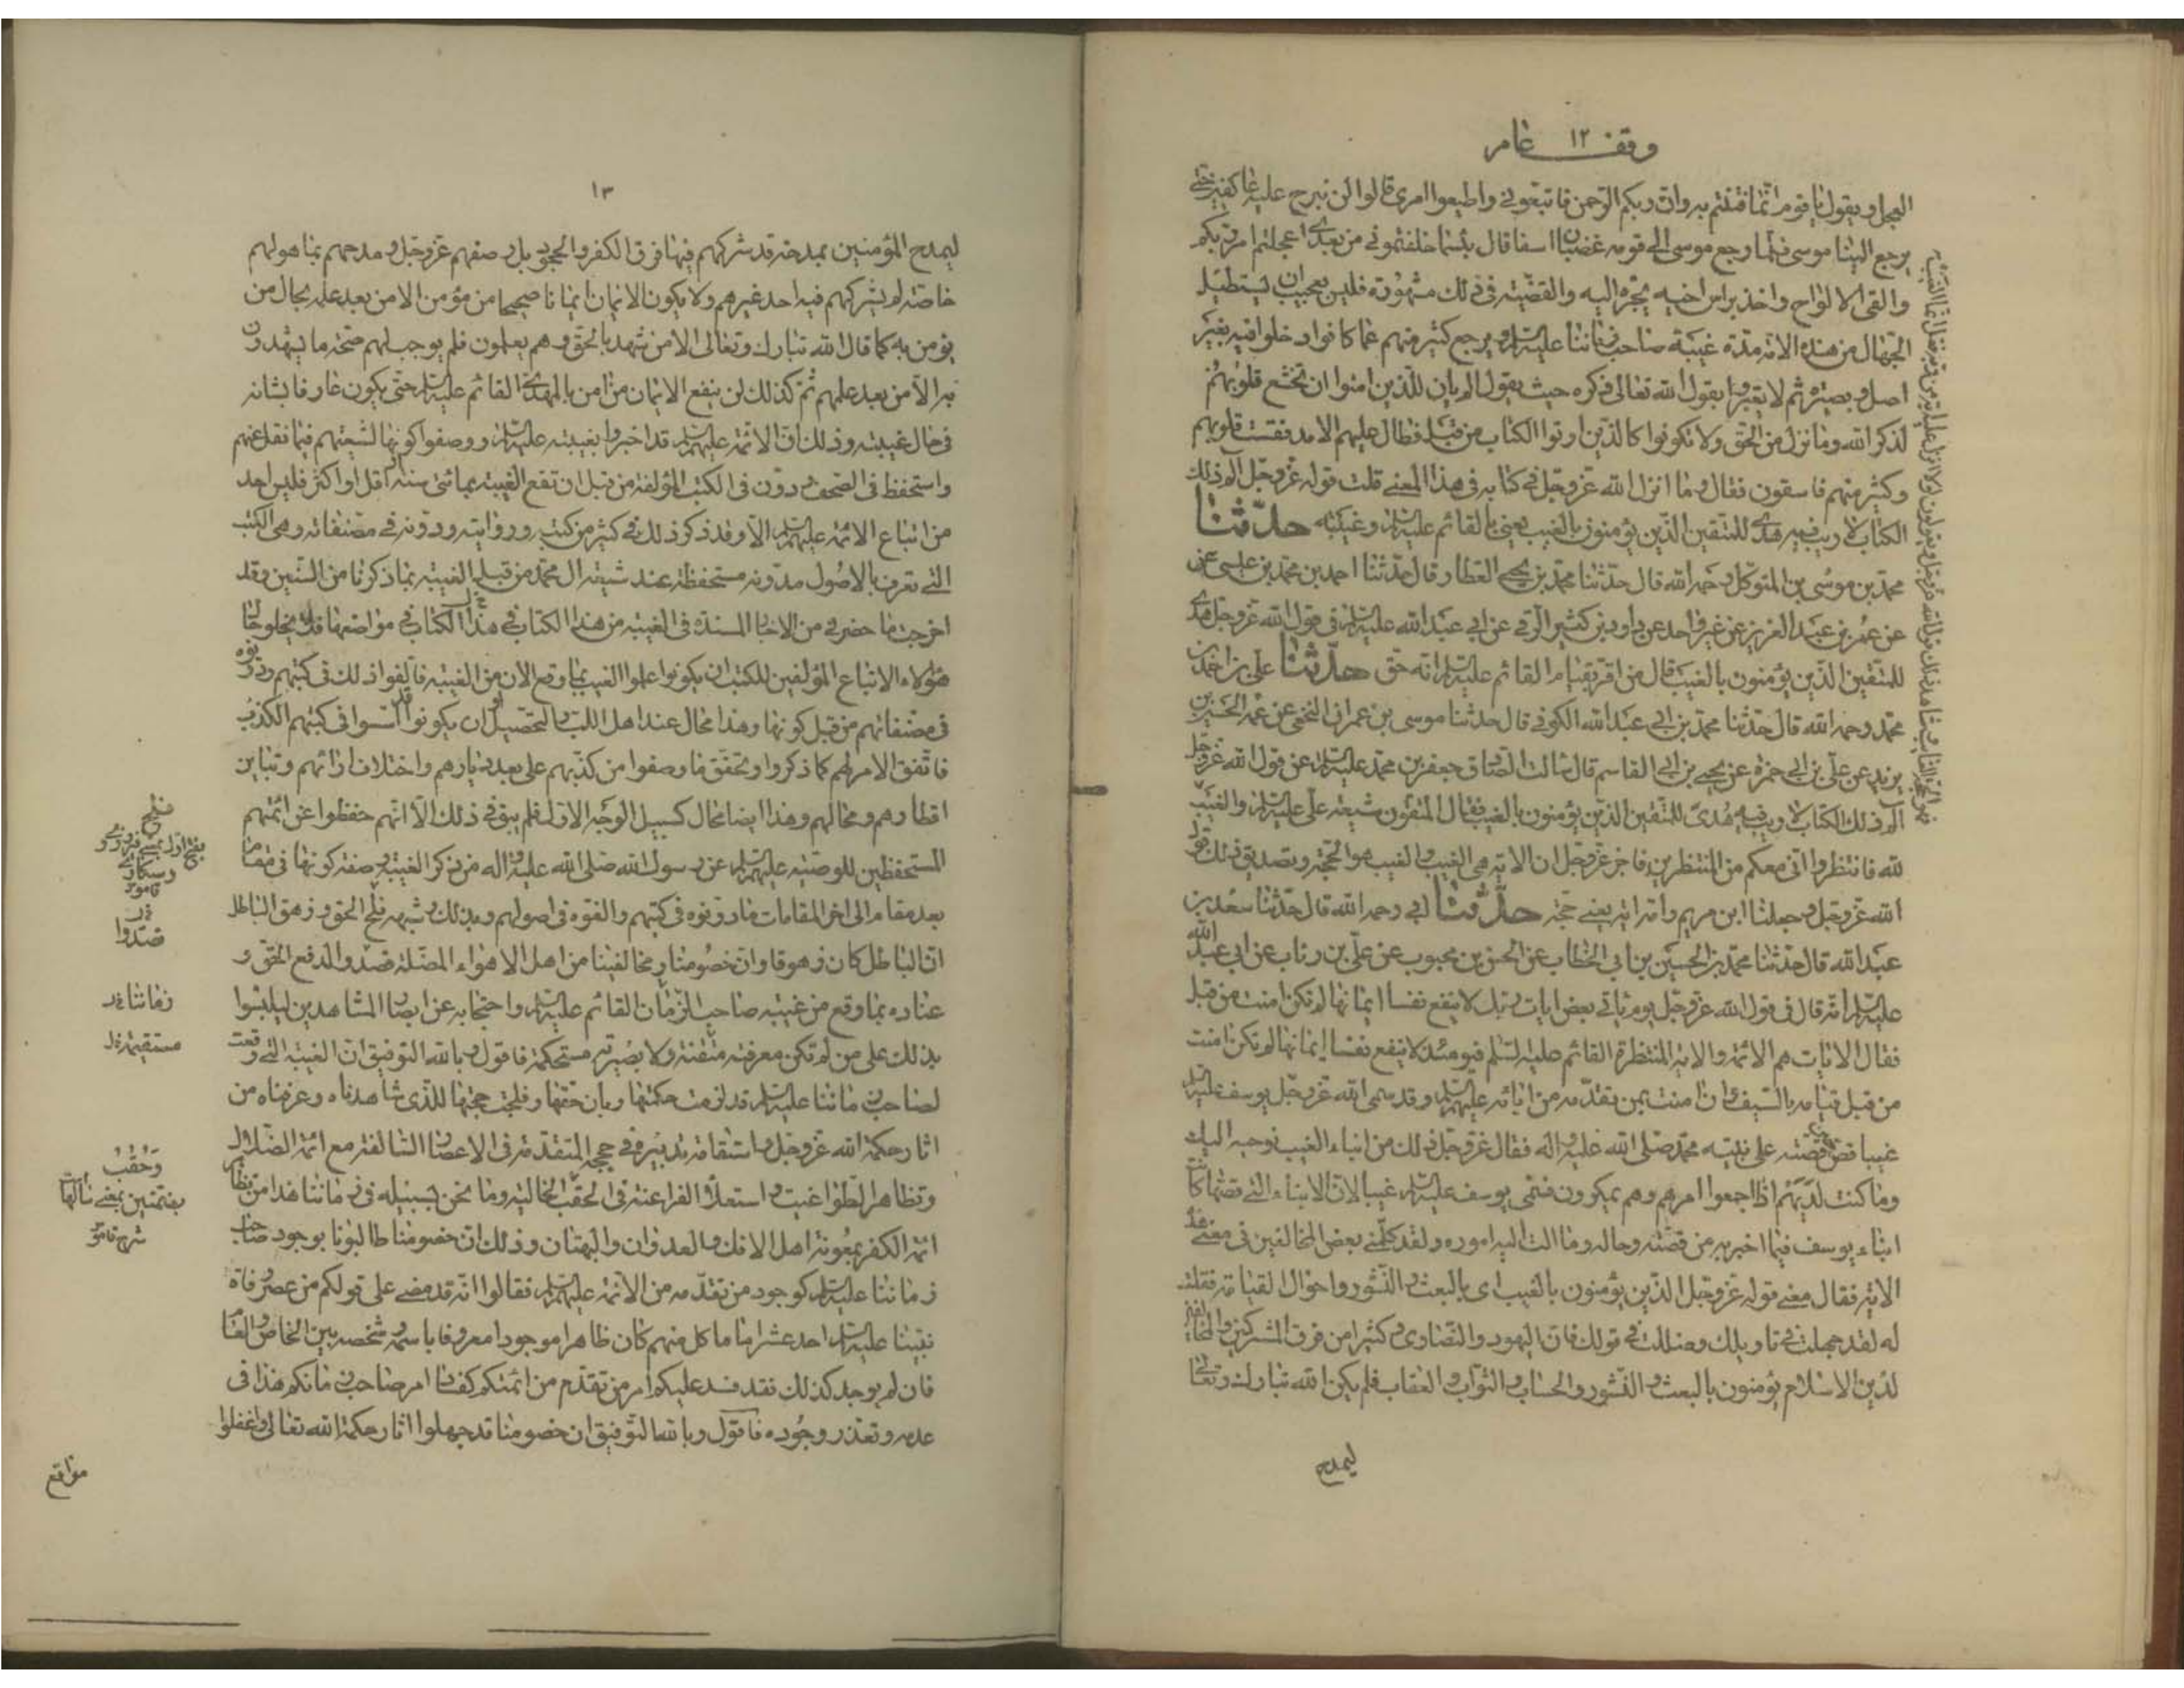 وقف ١٢ عام
العجل ويقول يا قوم انما فتنتم به وان ربكم الرحمن فاتبعوني واطيعوا امري قالوا لن نبرح عليه عاكفين حتى
يرجع الينا موسى فلما رجع موسى الى قومه غضبان اسفا قال بئسما خلفتموني من بعدي اعجلتم امر ربكم
والقى الالواح واخذ براس اخيه يجره اليه والقصة في ذلك مشهورة فليس بعجيب ان يستطيل
الجهال من هذه الامة مدة غيبة صاحب زماننا عليه السلام ويرجع كثير منهم عما كانوا دخلوا فيه بغير
اصل وبصيرة ثم لا يعتبروا بقول الله تعالى ذكره حيث يقول الم يان للذين امنوا ان تخشع قلوبهم
لذكر الله وما نزل من الحق ولا تكونوا كالذين اوتوا الكتاب من قبل فطال عليهم الامد فقست قلوبهم
وكثير منهم فاسقون فقال وما انزل الله عز وجل في كتابه في هذا المعنى قلت قوله عز وجل الم ذلك
الكتاب لا ريب فيه هدى للمتقين الذين يؤمنون بالغيب يعني بالقائم عليه السلام وغيبته حدثنا
محمد بن موسى بن المتوكل رحمه الله قال حدثنا محمد بن يحيى العطار قال حدثنا احمد بن محمد بن عيسى عن
عمر بن عبد العزيز عن غير واحد عن داود بن كثير الرقي عن ابي عبد الله عليه السلام في قول الله عز وجل هدى
للمتقين الذين يؤمنون بالغيب قال من اقر بقيام القائم عليه السلام انه حق حدثنا علي بن احمد بن
محمد رحمه الله قال حدثنا محمد بن ابي عبد الله الكوفي قال حدثنا موسى بن عمران النخعي عن عمه الحسين بن
يزيد عن علي بن ابي حمزة عن يحيى بن ابي القاسم قال سالت الصادق جعفر بن محمد عليه السلام عن قول الله عز وجل
الم ذلك الكتاب لا ريب فيه هدى للمتقين الذين يؤمنون بالغيب فقال المتقون شيعة علي عليه السلام والغيب
لله فانتظروا اني معكم من المنتظرين فاخبر عز وجل ان الاية هي الغيب والغيب هو الحجة وتصديق ذلك قول
الله عز وجل وجعلنا ابن مريم وامه اية يعني حجة حدثنا ابي رحمه الله قال حدثنا سعد بن
عبد الله قال حدثنا محمد بن الحسين بن ابي الخطاب عن الحسن بن محبوب عن علي بن رئاب عن ابي عبد الله
عليه السلام انه قال في قول الله عز وجل يوم ياتي بعض ايات ربك لا ينفع نفسا ايمانها لم تكن امنت من قبل
فقال الايات هم الائمة والاية المنتظرة القائم عليه السلام فيومئذ لا ينفع نفسا ايمانها لم تكن امنت
من قبل قيامه بالسيف وان امنت بمن تقدمه من ابائه عليهم السلام وقد سمى الله عز وجل يوسف عليه السلام
غيبا قص قصته على نبيه محمد صلى الله عليه واله فقال عز وجل ذلك من انباء الغيب نوحيه اليك
وما كنت لديهم اذ اجمعوا امرهم وهم يمكرون فسمى يوسف عليه السلام غيبا لان الانباء التي قصها كانت
انباء يوسف فيما اخبر به من قصته وحاله وما الت اليه اموره ولقد كلمني بعض المخالفين في معنى هذه
الاية فقال معنى قوله عز وجل الذين يؤمنون بالغيب اي بالبعث والنشور واحوال القيامة فقلت
له لقد جهلت في تاويلك وضللت في قولك فان اليهود والنصارى وكثيرا من فرق المشركين والمخالفين
لدين الاسلام يؤمنون بالبعث والنشور والحساب والثواب والعقاب فلم يكن الله تبارك وتعالى
ليمدح
١٣
ليمدح المؤمنين بمدحة قد شركهم فيها فرق الكفر والجحود بل وصفهم عز وجل ومدحهم بما هو لهم
خاصة لم يشركهم فيه احد غيرهم ولا يكون الايمان ايمانا صحيحا من مؤمن الا من بعد علمه بحال من
يؤمن به كما قال الله تبارك وتعالى الا من شهد بالحق وهم يعلمون فلم يوجب لهم صحة ما يشهدون
به الا من بعد علمهم ثم كذلك لن ينفع الايمان من امن بالمهدي القائم عليه السلام حتى يكون عارفا بشانه
في حال غيبته وذلك ان الائمة عليهم السلام قد اخبروا بغيبته عليه السلام ووصفوا كونها لشيعتهم فيما نقل عنهم
واستحفظ في الصحف ودون في الكتب المؤلفة من قبل ان تقع الغيبة بمائتي سنة او اقل او اكثر فليس احد
من اتباع الائمة عليهم السلام الا وقد ذكر ذلك في كثير من كتبه ورواياته ودونه في مصنفاته وهي الكتب
التي تعرف بالاصول مدونة مستحفظة عند شيعة ال محمد من قبل الغيبة بما ذكرنا من السنين وقد
اخرجت ما حضرني من الاخبار المسندة في الغيبة من هذا الكتاب في هذا الكتاب في مواضعها فلا يخلو حال
هؤلاء الاتباع المؤلفين للكتب ان يكونوا علموا الغيب بما وقع الان من الغيبة فالفوا ذلك في كتبهم ودونوه
في مصنفاتهم من قبل كونها وهذا محال عند اهل اللب والتحصيل او ان يكونوا قد اسسوا في كتبهم الكذب
فاتفق الامر لهم كما ذكروا وتحقق ما وصفوا من كذبهم على بعد ديارهم واختلاف ارائهم وتباين
اقطارهم ومحالهم وهذا ايضا محال كسبيل الوجه الاول فلم يبق في ذلك الا انهم حفظوا عن ائمتهم
المستحفظين للوصية عليهم السلام عن رسول الله صلى الله عليه واله من ذكر الغيبة وصفة كونها في مقام
بعد مقام الى اخر المقامات ما دونوه في كتبهم والفوه في اصولهم وبذلك وشبهه فلج الحق وزهق الباطل
ان الباطل كان زهوقا وان خصومنا ومخالفينا من اهل الاهواء المضلة قصدوا لدفع الحق و
عناده بما وقع من غيبة صاحب الزمان القائم عليه السلام واحتجابه عن ابصار المشاهدين ليلبسوا
بذلك على من لم تكن معرفته متقنة ولا بصيرته مستحكمة فاقول وبالله التوفيق ان الغيبة التي وقعت
لصاحب زماننا عليه السلام قد لزمت حكمتها وبان حقها وفلجت حجتها للذي شاهدناه وعرفناه من
اثار حكمة الله عز وجل واستقامة تدبيره في حججه المتقدمة في الاعصار السالفة مع ائمة الضلال
وتظاهر الطواغيت واستعلاء الفراعنة في الحقب الخالية وما نحن بسبيله في زماننا هذا من تظاهر
ائمة الكفر بمعونة اهل الافك والعدوان والبهتان وذلك ان خصومنا طالبونا بوجود صاحب
زماننا عليه السلام كوجود من تقدمه من الائمة عليهم السلام فقالوا انه قد مضى على قولكم من عصر وفاة
نبينا عليه السلام احد عشر اماما كل منهم كان ظاهرا موجودا معروفا باسمه وشخصه بين الخاص والعام
فان لم يوجد كذلك فقد فسد عليكم امر من تقدم من ائمتكم كفساد امر صاحب زمانكم هذا في
عدمه وتعذر وجوده فاقول وبالله التوفيق ان خصومنا قد جهلوا اثار حكمة الله تعالى واغفلوا
مواقع
فلج
قصدوا
زماننا خ ل
مستقيمة خ ل
وحقب